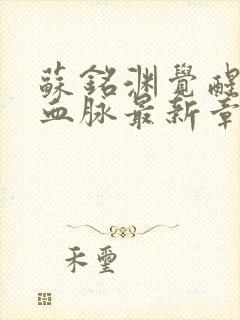 蘇銘淵覺醒
血脉最新章
禾璽